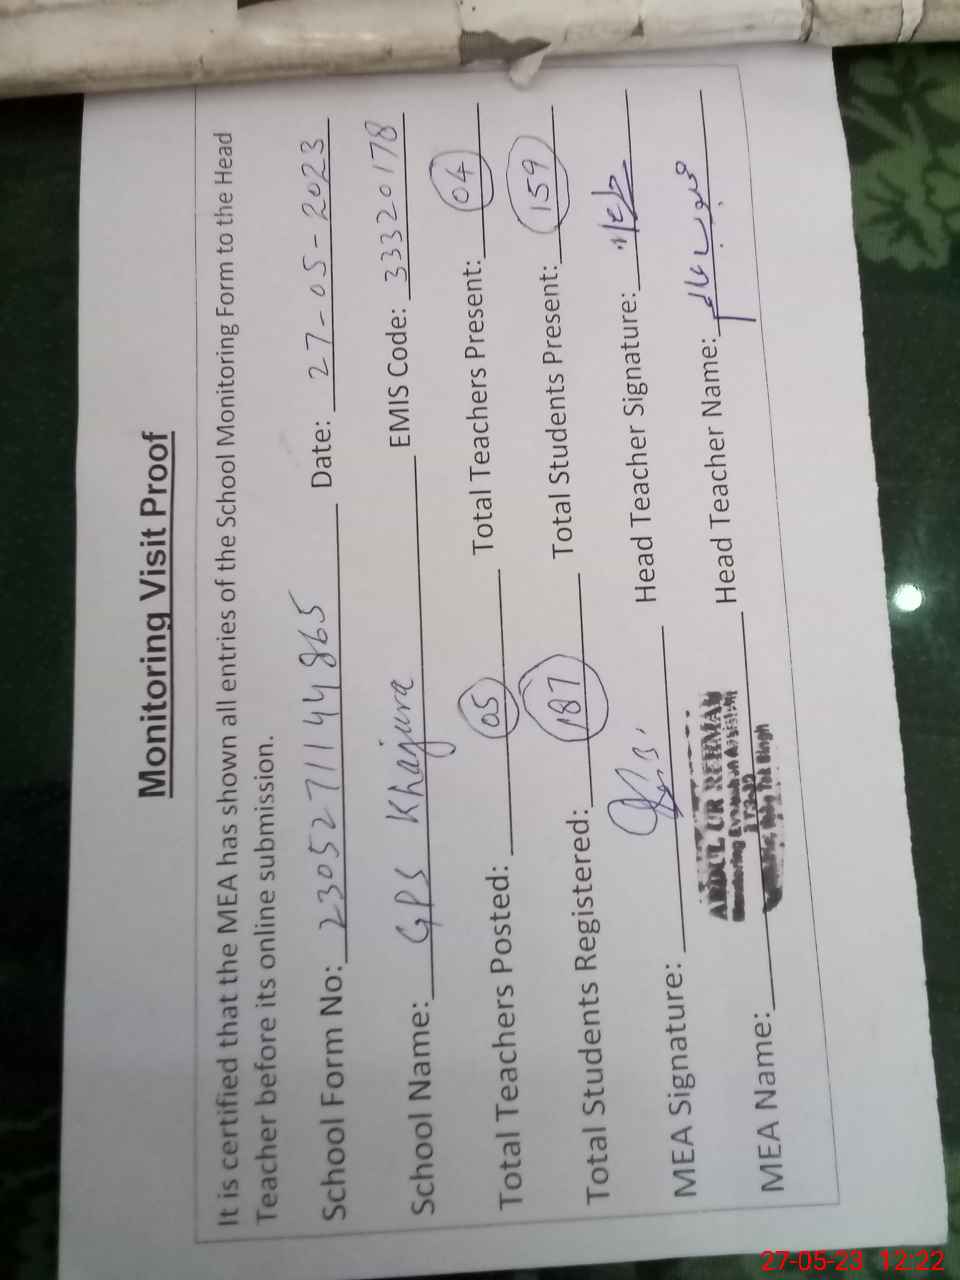 Monitoring Visit Proof
It is certified that the MEA has shown all entries of the School Monitoring Form to the Head
Teacher before its online submission.
School Form No: 2305271144865 Date: 27-05-2023
School Name: GPS Khajura EMIS Code: 33320178
Total Teachers Posted: 05 Total Teachers Present: 04
Total Students Registered: 187 Total Students Present: 159
MEA Signature: Head Teacher Signature:
MEA Name: ABDUL UR REHMAN Head Teacher Name: محبوب عالم
Monitoring Evaluation Assistant
27-05-23 12:22